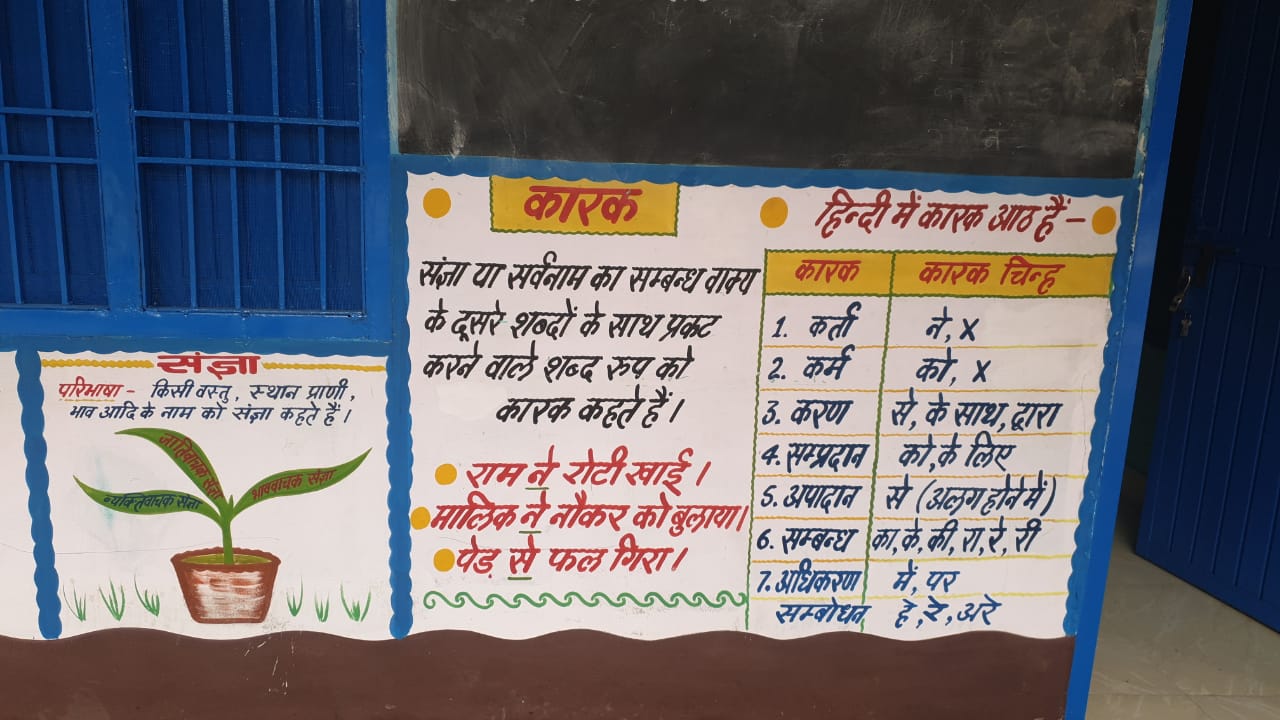 संज्ञा
परिभाषा - किसी वस्तु, स्थान प्राणी,
भाव आदि के नाम को संज्ञा कहते हैं।
जातिवाचक संज्ञा
भाववाचक संज्ञा
व्यक्तिवाचक संज्ञा
कारक
संज्ञा या सर्वनाम का सम्बन्ध वाक्य
के दूसरे शब्दों के साथ प्रकट
करने वाले शब्द रुप को
कारक कहते हैं।
राम ने रोटी खाई।
मालिक ने नौकर को बुलाया।
पेड़ से फल गिरा।
हिन्दी में कारक आठ हैं -
कारक कारक चिन्ह
1. कर्ता ने, x
2. कर्म को, x
3. करण से, के साथ, द्वारा
4. सम्प्रदान को, के लिए
5. अपादान से (अलग होने में)
6. सम्बन्ध का, के, की, रा, रे, री
7. अधिकरण में, पर
सम्बोधन हे, रे, अरे